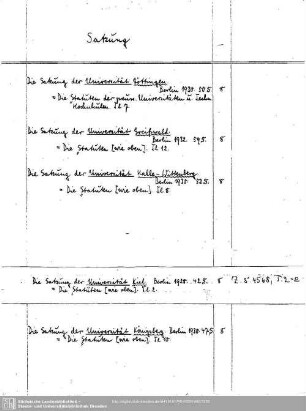 Satzung
Die Satzung der Universität Göttingen
Berlin 1930. 50 S. 8
= Die Statuten der preuss. Universitäten u. Techn.
Hochschulen. Tl 7.
Die Satzung der Universität Greifswald
Berlin 1932. 59 S. 8
= Die Statuten [wie oben]. Tl 12.
Die Satzung der Universität Halle-Wittenberg
Berlin 1930. 52 S. 8
= Die Statuten [wie oben]. Tl 8.
Die Satzung der Universität Kiel. Berlin 1928. 42 S. 8 Z. 8° 4568, T. 2
= Die Statuten [wie oben]. Tl 2.
Die Satzung der Universität Königsberg. Berlin 1930. 47 S. 8
= Die Statuten [wie oben]. Tl 10.